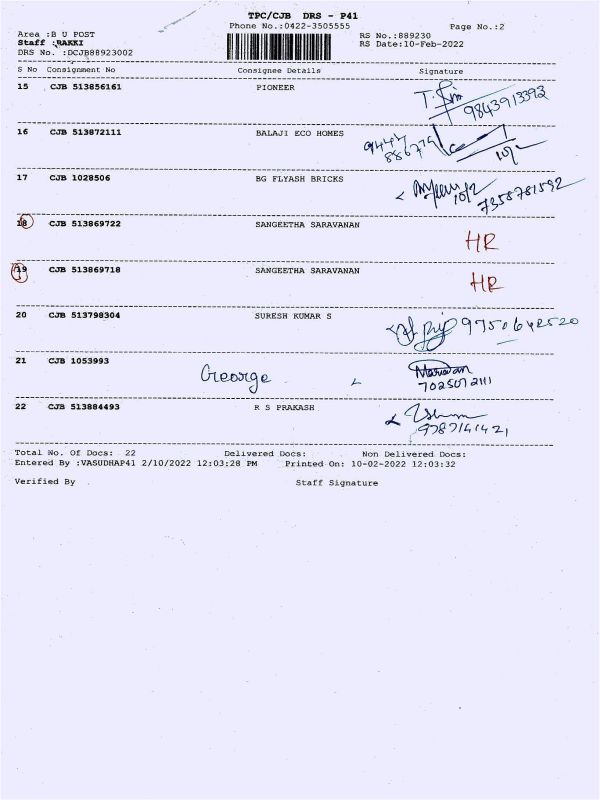 TPC/CJB DRS - P41
Phone No.:0422-3505555 Page No.:2
Area :B U POST RS No.:889230
Staff :RAKKI RS Date:10-Feb-2022
DRS No. :DCJB88923002
S No Consignment No Consignee Details Signature
15 CJB 513856161 PIONEER
9843913392
16 CJB 513872111 BALAJI ECO HOMES
10/2
17 CJB 1028506 BG FLYASH BRICKS
10/2
7358781592
18 CJB 513869722 SANGEETHA SARAVANAN
HR
19 CJB 513869718 SANGEETHA SARAVANAN
HR
20 CJB 513798304 SURESH KUMAR S
9750642520
21 CJB 1053993 George
7025072111
22 CJB 513884493 R S PRAKASH
9787141421
Total No. Of Docs: 22 Delivered Docs: Non Delivered Docs:
Entered By :VASUDHAP41 2/10/2022 12:03:28 PM Printed On: 10-02-2022 12:03:32
Verified By Staff Signature